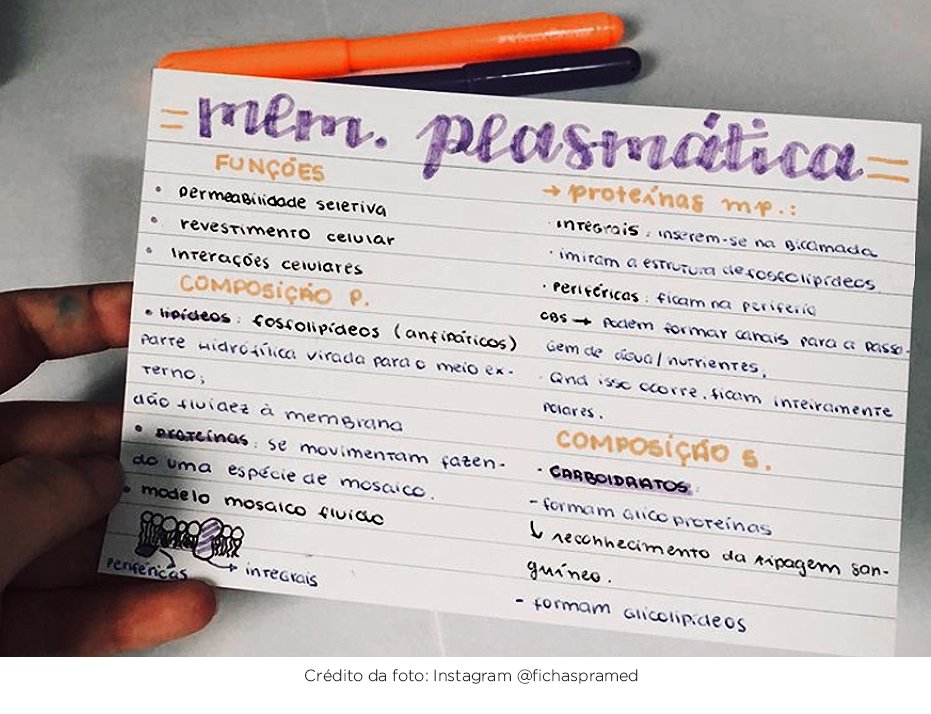 = mem. plasmática =
FUNÇÕES
• permeabilidade seletiva
• revestimento celular
• Interações celulares
COMPOSIÇÃO P.
• lipídeos: fosfolipídeos (anfipáticos)
parte hidrofílica virada para o meio ex-
terno;
dão fluidez à membrana
• proteínas: se movimentam fazen-
do uma espécie de mosaico.
• modelo mosaico fluido
periféricas
integrais
→ proteínas mp.:
· integrais: inserem-se na bicamada
· imitam a estrutura de fosfolipídeos
· periféricas: ficam na periferia
OBS → podem formar canais para a passa-
gem de água/nutrientes.
· Qnd isso ocorre, ficam inteiramente
polares.
COMPOSIÇÃO S.
· CARBOIDRATOS:
- formam glicoproteínas
↳ reconhecimento da tipagem san-
guíneo.
- formam glicolipídeos
Crédito da foto: Instagram @fichaspramed